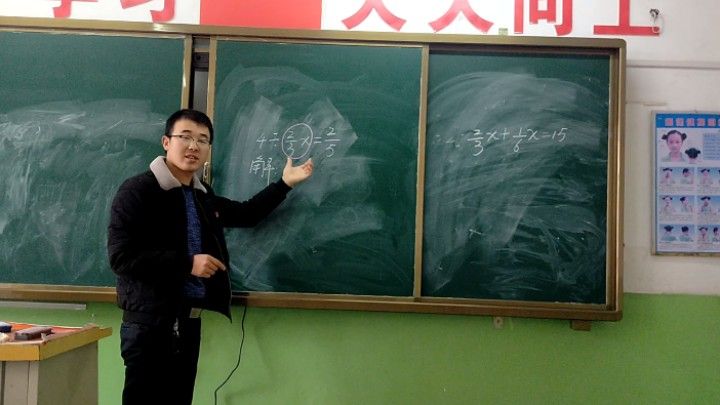 学习 天天向上
4÷2/3x=2/5
解:
2/3x+1/6x=15